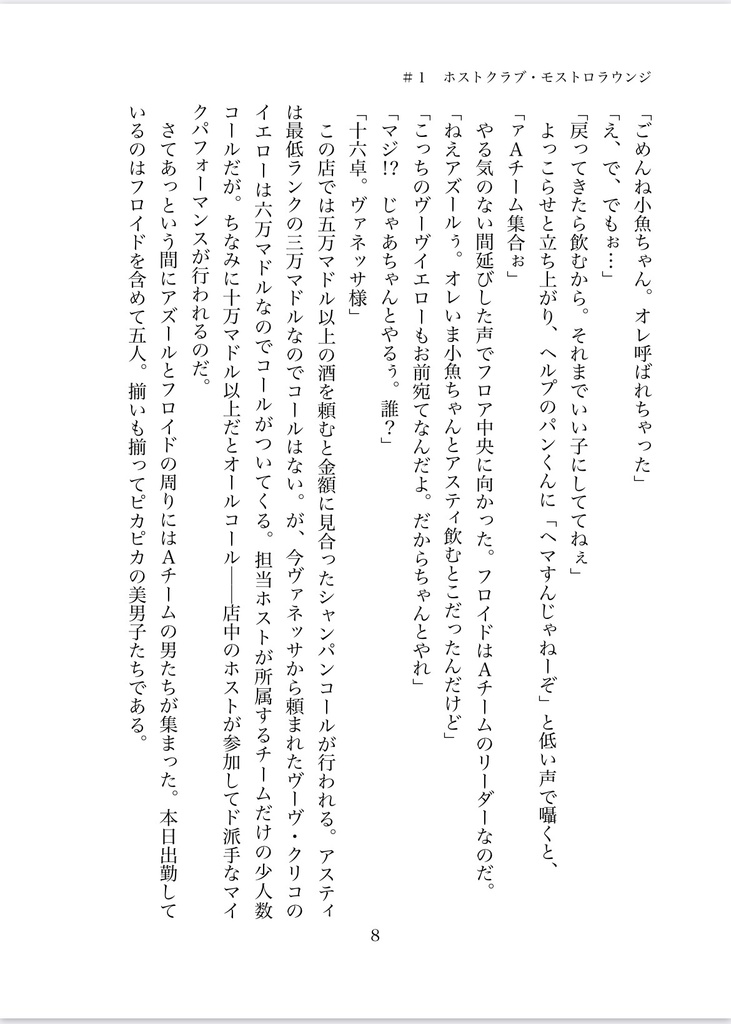 ＃１　ホストクラブ・モストロラウンジ
「ごめんね小魚ちゃん。オレ呼ばれちゃった」
「え、で、でもぉ…」
「戻ってきたら飲むから。それまでいい子にしててねぇ」
　よっこらせと立ち上がり、ヘルプのパンくんに「ヘマすんじゃねーぞ」と低い声で囁くと、
「ァＡチーム集合ぉ」
　やる気のない間延びした声でフロア中央に向かった。フロイドはＡチームのリーダーなのだ。
「ねえアズールぅ。オレいま小魚ちゃんとアスティ飲むとこだったんだけど」
「こっちのヴーヴイエローもお前宛てなんだよ。だからちゃんとやれ」
「マジ!?　じゃあちゃんとやるぅ。誰？」
「十六卓。ヴァネッサ様」
　この店では五万マドル以上の酒を頼むと金額に見合ったシャンパンコールが行われる。アスティ
は最低ランクの三万マドルなのでコールはない。が、今ヴァネッサから頼まれたヴーヴ・クリコの
イエローは六万マドルなのでコールがついてくる。担当ホストが所属するチームだけの少人数
コールだが。ちなみに十万マドル以上だとオールコール――店中のホストが参加してド派手なマイ
クパフォーマンスが行われるのだ。
　さてあっという間にアズールとフロイドの周りにはＡチームの男たちが集まった。本日出勤して
いるのはフロイドを含めて五人。揃いも揃ってピカピカの美男子たちである。
8